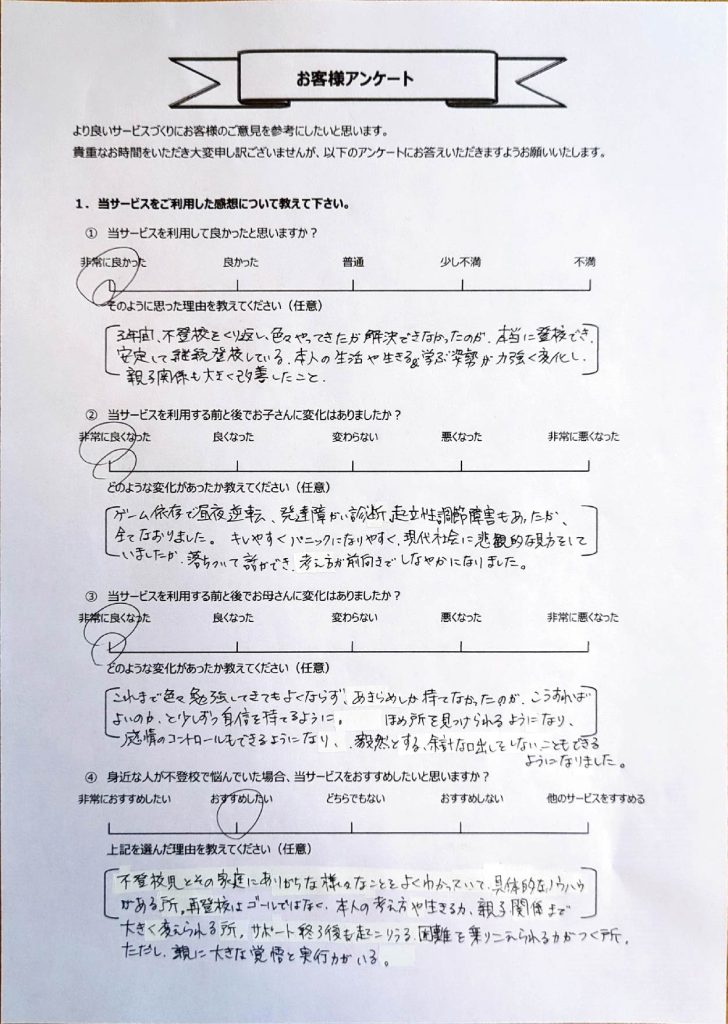 お客様アンケート
より良いサービスづくりにお客様のご意見を参考にしたいと思います。
貴重なお時間をいただき大変申し訳ございませんが、以下のアンケートにお答えいただきますようお願いいたします。
１．当サービスをご利用した感想について教えて下さい。
① 当サービスを利用して良かったと思いますか？
非常に良かった 良かった 普通 少し不満 不満
そのように思った理由を教えてください（任意）
3年間、不登校をくり返し、色々やってきたが解決できなかったのが、本当に登校でき、
安定して継続登校している。本人の生活や生きる&学ぶ姿勢が力強く変化し、
親子関係も大きく改善したこと。
② 当サービスを利用する前と後でお子さんに変化はありましたか？
非常に良くなった 良くなった 変わらない 悪くなった 非常に悪くなった
どのような変化があったか教えてください（任意）
ゲーム依存で昼夜逆転、発達障がい診断、起立性調節障害もあったが、
全てなおりました。キレやすくパニックになりやすく、現代社会に悲観的な見方をして
いましたが、落ちついて話ができ、考え方が前向きでしなやかになりました。
③ 当サービスを利用する前と後でお母さんに変化はありましたか？
非常に良くなった 良くなった 変わらない 悪くなった 非常に悪くなった
どのような変化があったか教えてください（任意）
これまで色々勉強してきてもよくならず、あきらめしか持てなかったのが、こうすれば
よいのか、と少しずつ自信を持てるように。 ほめ所を見つけられるようになり、
感情のコントロールもできるようになり、毅然とする、余計な口出しをしないこともできる
ようになりました。
④ 身近な人が不登校で悩んでいた場合、当サービスをおすすめしたいと思いますか？
非常におすすめしたい おすすめしたい どちらでもない おすすめしない 他のサービスをすすめる
上記を選んだ理由を教えてください（任意）
不登校児とその家庭にありがちな様々なことをよくわかっていて、具体的なノウハウ
がある所。再登校はゴールではなく、本人の考え方や生きる力、親子関係まで
大きく変えられる所。サポート終了後も起こりうる困難を乗りこえられる力がつく所。
ただし、親に大きな覚悟と実行力がいる。